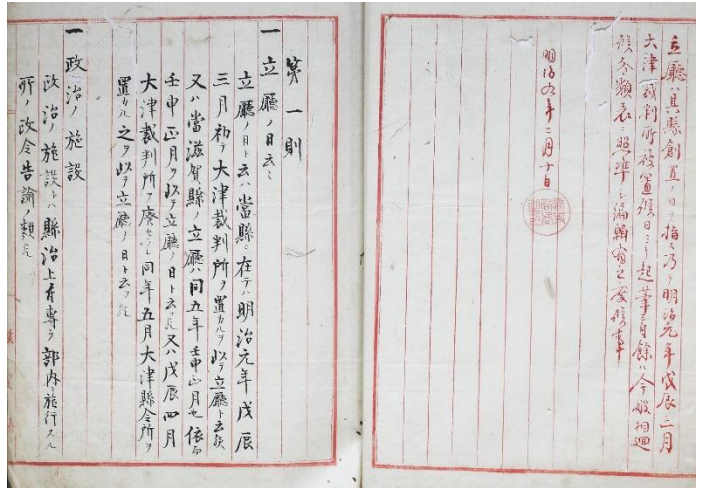 立廳ハ其縣創置ノ日ヲ指ス乃ケ明治元年戊辰二月
大津裁判所被置候日ヨリ起筆可有餘ハ今般相廻
候令類表ニ照準シ編輯有之度候事
明治九年二月十日
第一則
一 立廳ノ日云々
立廳ノ日ト云ハ當縣ニ在テハ明治元年戊辰
三月初ヲ大津裁判所ヲ置カルヲ以テ立廳ト云
又ハ當滋賀縣ノ立廳ハ同五年壬申正月也依而
壬申正月ヲ以テ立廳ノ日ト云又ハ戊辰四月
大津裁判所ヲ廢セラレ同年五月大津縣令所ヲ
置カル之ヲ以テ立廳ノ日ト云
一 政治ノ施設
政治ノ施設トハ縣治上専ラ部内ヲ施行スル
所ノ政令告諭ノ類